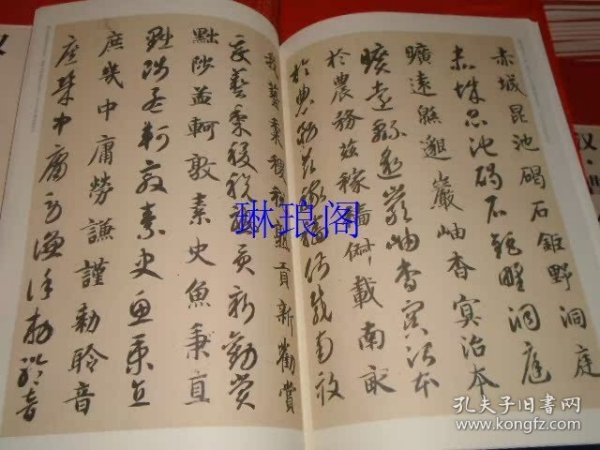 赤城昆池碣石鉅野洞庭
赤城昆池碣石鉅野洞庭
曠遠緜邈巖岫杳冥治本
曠遠緜邈巖岫杳冥治本
於農務茲稼穡俶載南畝
於農務茲稼穡俶載南畝
我藝黍稷稅熟貢新勸賞
我藝黍稷稅熟貢新勸賞
黜陟孟軻敦素史魚秉直
黜陟孟軻敦素史魚秉直
庶幾中庸勞謙謹勑聆音
庶幾中庸勞謙謹勑聆音
琳琅阁
孔夫子旧书网
www.kongfz.com